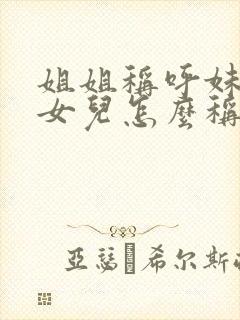 姐姐稱呼妹
女兒怎麼稱
亞瑟·希尔斯